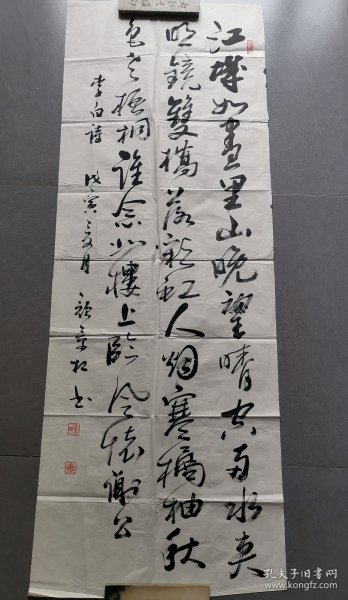 江城如畫里山晚望晴空兩水夾
明鏡雙橋落彩虹人烟寒橘柚秋
色老梧桐誰念北樓上臨風懷謝公
李白詩 戊寅夏月 書
孔夫子旧书网